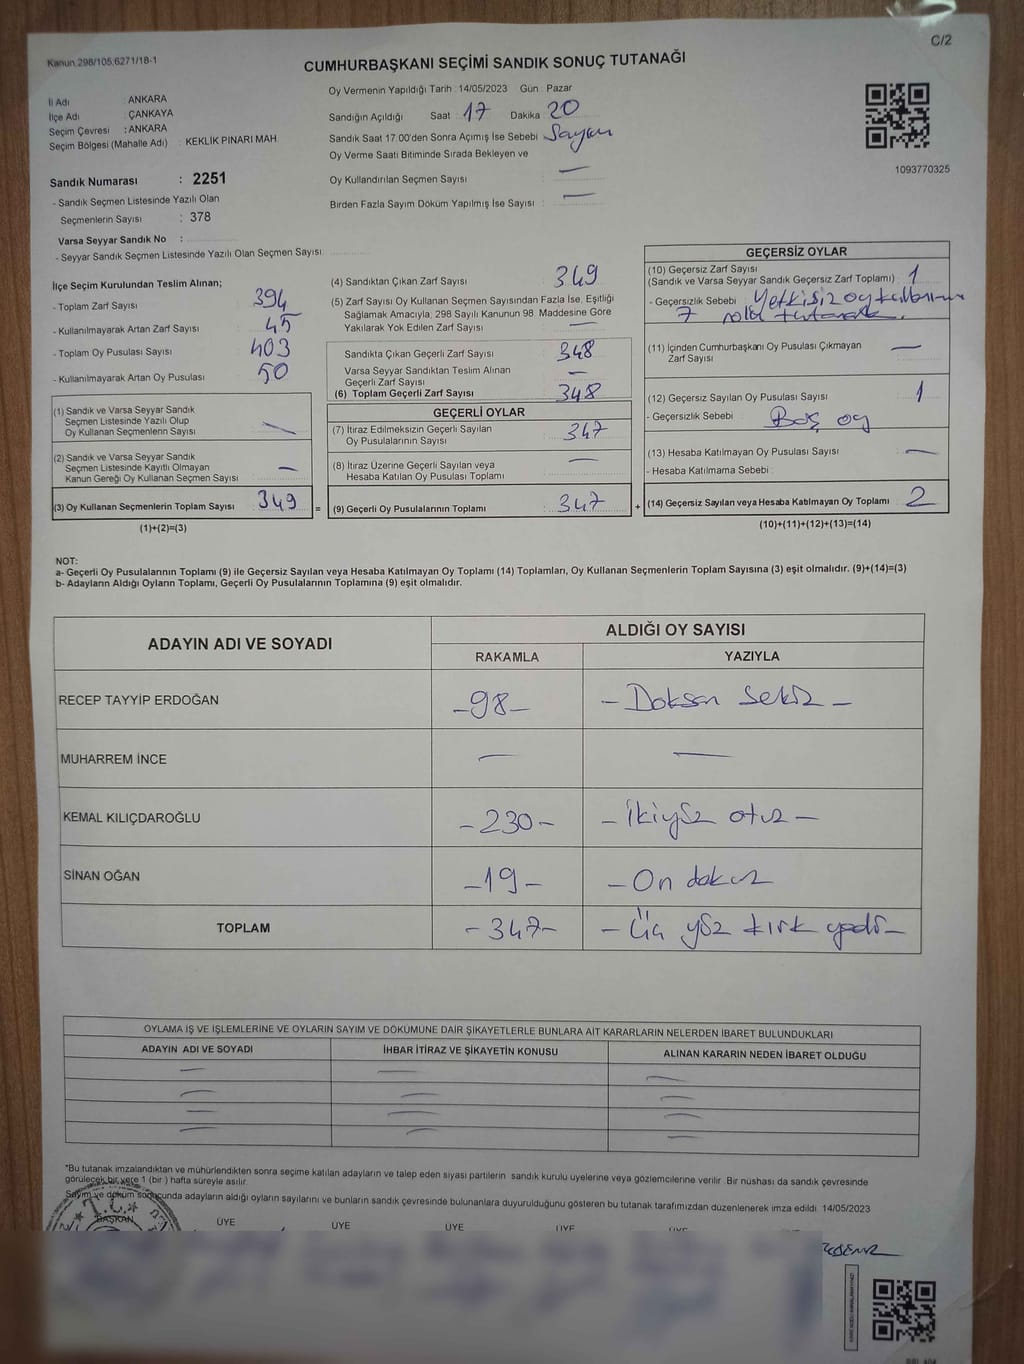 Kanun 298/105,6271/18-1
C/2
CUMHURBAŞKANI SEÇİMİ SANDIK SONUÇ TUTANAĞI
İl Adı : ANKARA
İlçe Adı : ÇANKAYA
Seçim Çevresi : ANKARA
Seçim Bölgesi (Mahalle Adı) : KEKLİK PINARI MAH
Sandık Numarası : 2251
- Sandık Seçmen Listesinde Yazılı Olan
Seçmenlerin Sayısı : 378
Varsa Seyyar Sandık No :
- Seyyar Sandık Seçmen Listesinde Yazılı Olan Seçmen Sayısı
Oy Vermenin Yapıldığı Tarih : 14/05/2023 Gün : Pazar
Sandığın Açıldığı Saat 17 Dakika 20
Sandık Saat 17.00'den Sonra Açımış İse Sebebi Sayım
Oy Verme Saati Bitiminde Sırada Bekleyen ve
Oy Kullandırılan Seçmen Sayısı : —
Birden Fazla Sayım Döküm Yapılmış İse Sayısı : —
1093770325
İlçe Seçim Kurulundan Teslim Alınan;
- Toplam Zarf Sayısı 394
- Kullanılmayarak Artan Zarf Sayısı 45
- Toplam Oy Pusulası Sayısı 403
- Kullanılmayarak Artan Oy Pusulası 50
(1) Sandık ve Varsa Seyyar Sandık
Seçmen Listesinde Yazılı Olup
Oy Kullanan Seçmenlerin Sayısı —
(2) Sandık ve Varsa Seyyar Sandık
Seçmen Listesinde Kayıtlı Olmayan
Kanun Gereği Oy Kullanan Seçmen Sayısı —
(3) Oy Kullanan Seçmenlerin Toplam Sayısı 349 =
(1)+(2)=(3)
(4) Sandıktan Çıkan Zarf Sayısı 349
(5) Zarf Sayısı Oy Kullanan Seçmen Sayısından Fazla İse, Eşitliği
Sağlamak Amacıyla, 298 Sayılı Kanunun 98. Maddesine Göre
Yakılarak Yok Edilen Zarf Sayısı —
Sandıkta Çıkan Geçerli Zarf Sayısı 348
Varsa Seyyar Sandıktan Teslim Alınan
Geçerli Zarf Sayısı —
(6) Toplam Geçerli Zarf Sayısı 348
GEÇERLİ OYLAR
(7) İtiraz Edilmeksizin Geçerli Sayılan
Oy Pusulalarının Sayısı 347
(8) İtiraz Üzerine Geçerli Sayılan veya
Hesaba Katılan Oy Pusulası Toplamı —
(9) Geçerli Oy Pusulalarının Toplamı 347 +
GEÇERSİZ OYLAR
(10) Geçersiz Zarf Sayısı
(Sandık ve Varsa Seyyar Sandık Geçersiz Zarf Toplamı) : 1
- Geçersizlik Sebebi Yetkisiz oy
7
(11) İçinden Cumhurbaşkanı Oy Pusulası Çıkmayan
Zarf Sayısı —
(12) Geçersiz Sayılan Oy Pusulası Sayısı 1
- Geçersizlik Sebebi Boş oy
(13) Hesaba Katılmayan Oy Pusulası Sayısı —
- Hesaba Katılmama Sebebi
(14) Geçersiz Sayılan veya Hesaba Katılmayan Oy Toplamı 2
(10)+(11)+(12)+(13)=(14)
NOT:
a- Geçerli Oy Pusulalarının Toplamı (9) ile Geçersiz Sayılan veya Hesaba Katılmayan Oy Toplamı (14) Toplamları, Oy Kullanan Seçmenlerin Toplam Sayısına (3) eşit olmalıdır. (9)+(14)=(3)
b- Adayların Aldığı Oyların Toplamı, Geçerli Oy Pusulalarının Toplamına (9) eşit olmalıdır.
ADAYIN ADI VE SOYADI ALDIĞI OY SAYISI
RAKAMLA YAZIYLA
RECEP TAYYİP ERDOĞAN -98- - Doksan sekiz -
MUHARREM İNCE — —
KEMAL KILIÇDAROĞLU -230- - İkiyüz otuz -
SİNAN OĞAN -19- - On dokuz
TOPLAM -347- - Üç yüz kırk yedi -
OYLAMA İŞ VE İŞLEMLERİNE VE OYLARIN SAYIM VE DÖKÜMÜNE DAİR ŞİKAYETLERLE BUNLARA AİT KARARLARIN NELERDEN İBARET BULUNDUKLARI
ADAYIN ADI VE SOYADI İHBAR İTİRAZ VE ŞİKAYETİN KONUSU ALINAN KARARIN NEDEN İBARET OLDUĞU
— — —
— — —
— — —
— — —
*Bu tutanak imzalandıktan ve mühürlendikten sonra seçime katılan adayların ve talep eden siyasi partilerin sandık kurulu üyelerine veya gözlemcilerine verilir. Bir nüshası da sandık çevresinde
görülecek bir yere 1 (bir ) hafta süreyle asılır.
Sayım ve döküm sonucunda adayların aldığı oyların sayılarını ve bunların sandık çevresinde bulunanlara duyurulduğunu gösteren bu tutanak tarafımızdan düzenlenerek imza edildi. 14/05/2023
T.C.
BAŞKAN ÜYE ÜYE ÜYE ÜYE ÜYE